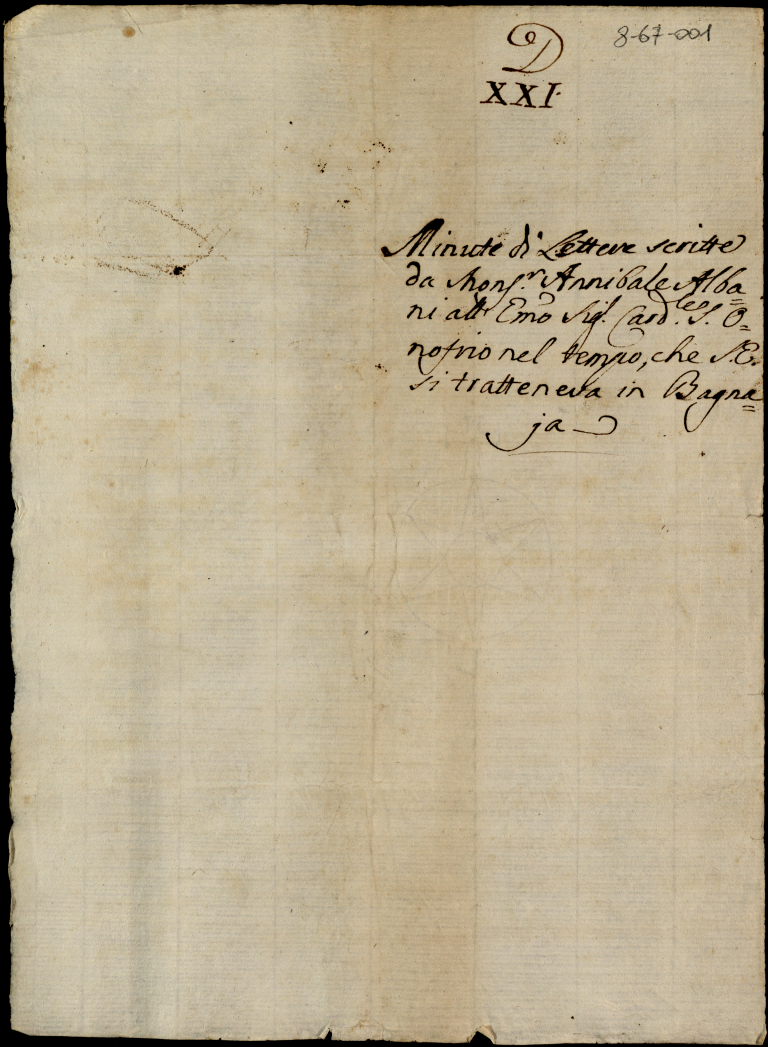 D
8-67-001
XXI
Minute di Lettere scritte
da Mons.r Annibale Alba=
ni all' Emo Sig. Card.le S. O=
nofrio nel tempo, che S.E.
si tratteneva in Bagna=
ja